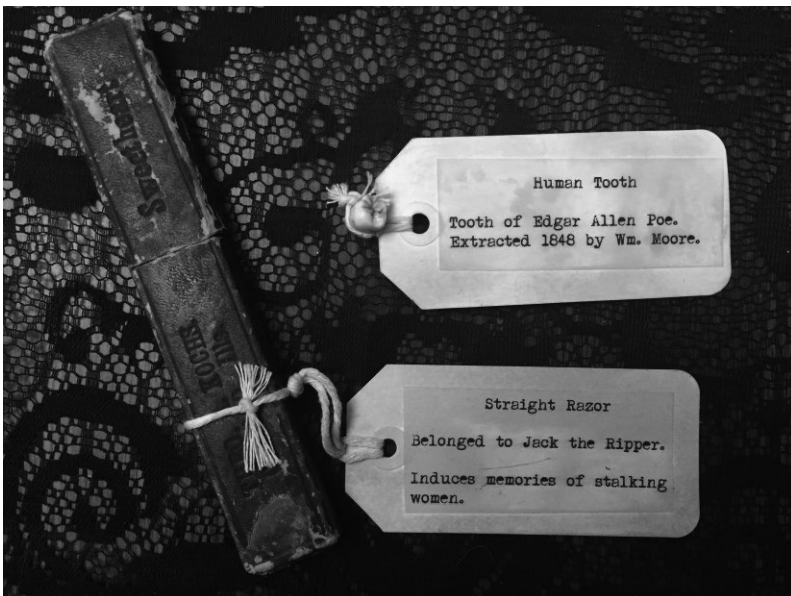 Sweetheart
Human Tooth
Tooth of Edgar Allen Poe.
Extracted 1848 by Wm. Moore.
Straight Razor
Belonged to Jack the Ripper.
Induces memories of stalking
women.